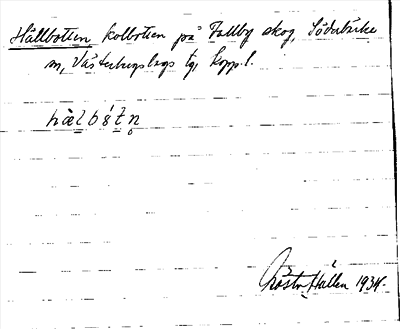 Hällbotten kolbotten på Tallby skog, Söderbärke
sn, Västerbergslags tg, Kopp. l.
hælbŏtn̥
Gösta Hallen 1934.